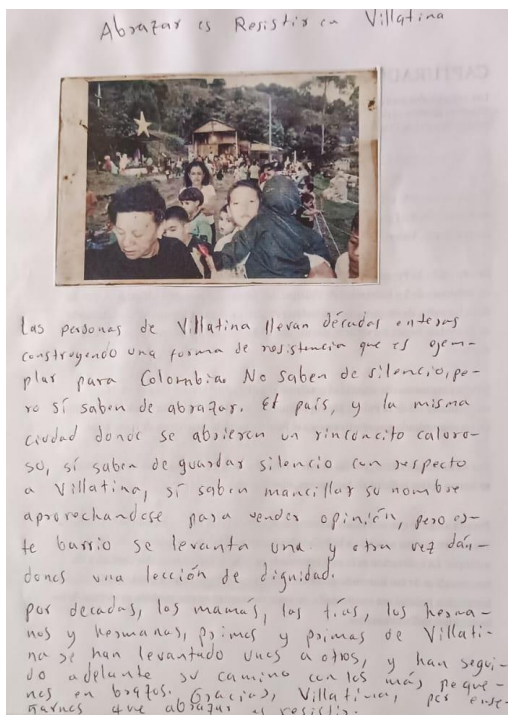 Abrazar es Resistir en Villatina
Las personas de Villatina llevan décadas enteras
construyendo una forma de resistencia que es ejem-
plar para Colombia. No saben de silencio, pe-
ro sí saben de abrazar. El país, y la misma
ciudad donde se abrieron un rinconcito caluro-
so, sí saben de guardar silencio con respecto
a Villatina, sí saben mancillar su nombre
aprovechandose para vender opinión, pero es-
te barrio se levanta una y otra vez dán-
donos una lección de dignidad.
Por décadas, las mamás, las tías, los herma-
nos y hermanas, primos y primas de Villati-
na se han levantado unos a otros, y han segui-
do adelante su camino con los más peque-
nos en brazos. Gracias, Villatina, por ense-
ñarnos que abrazar es resistir.